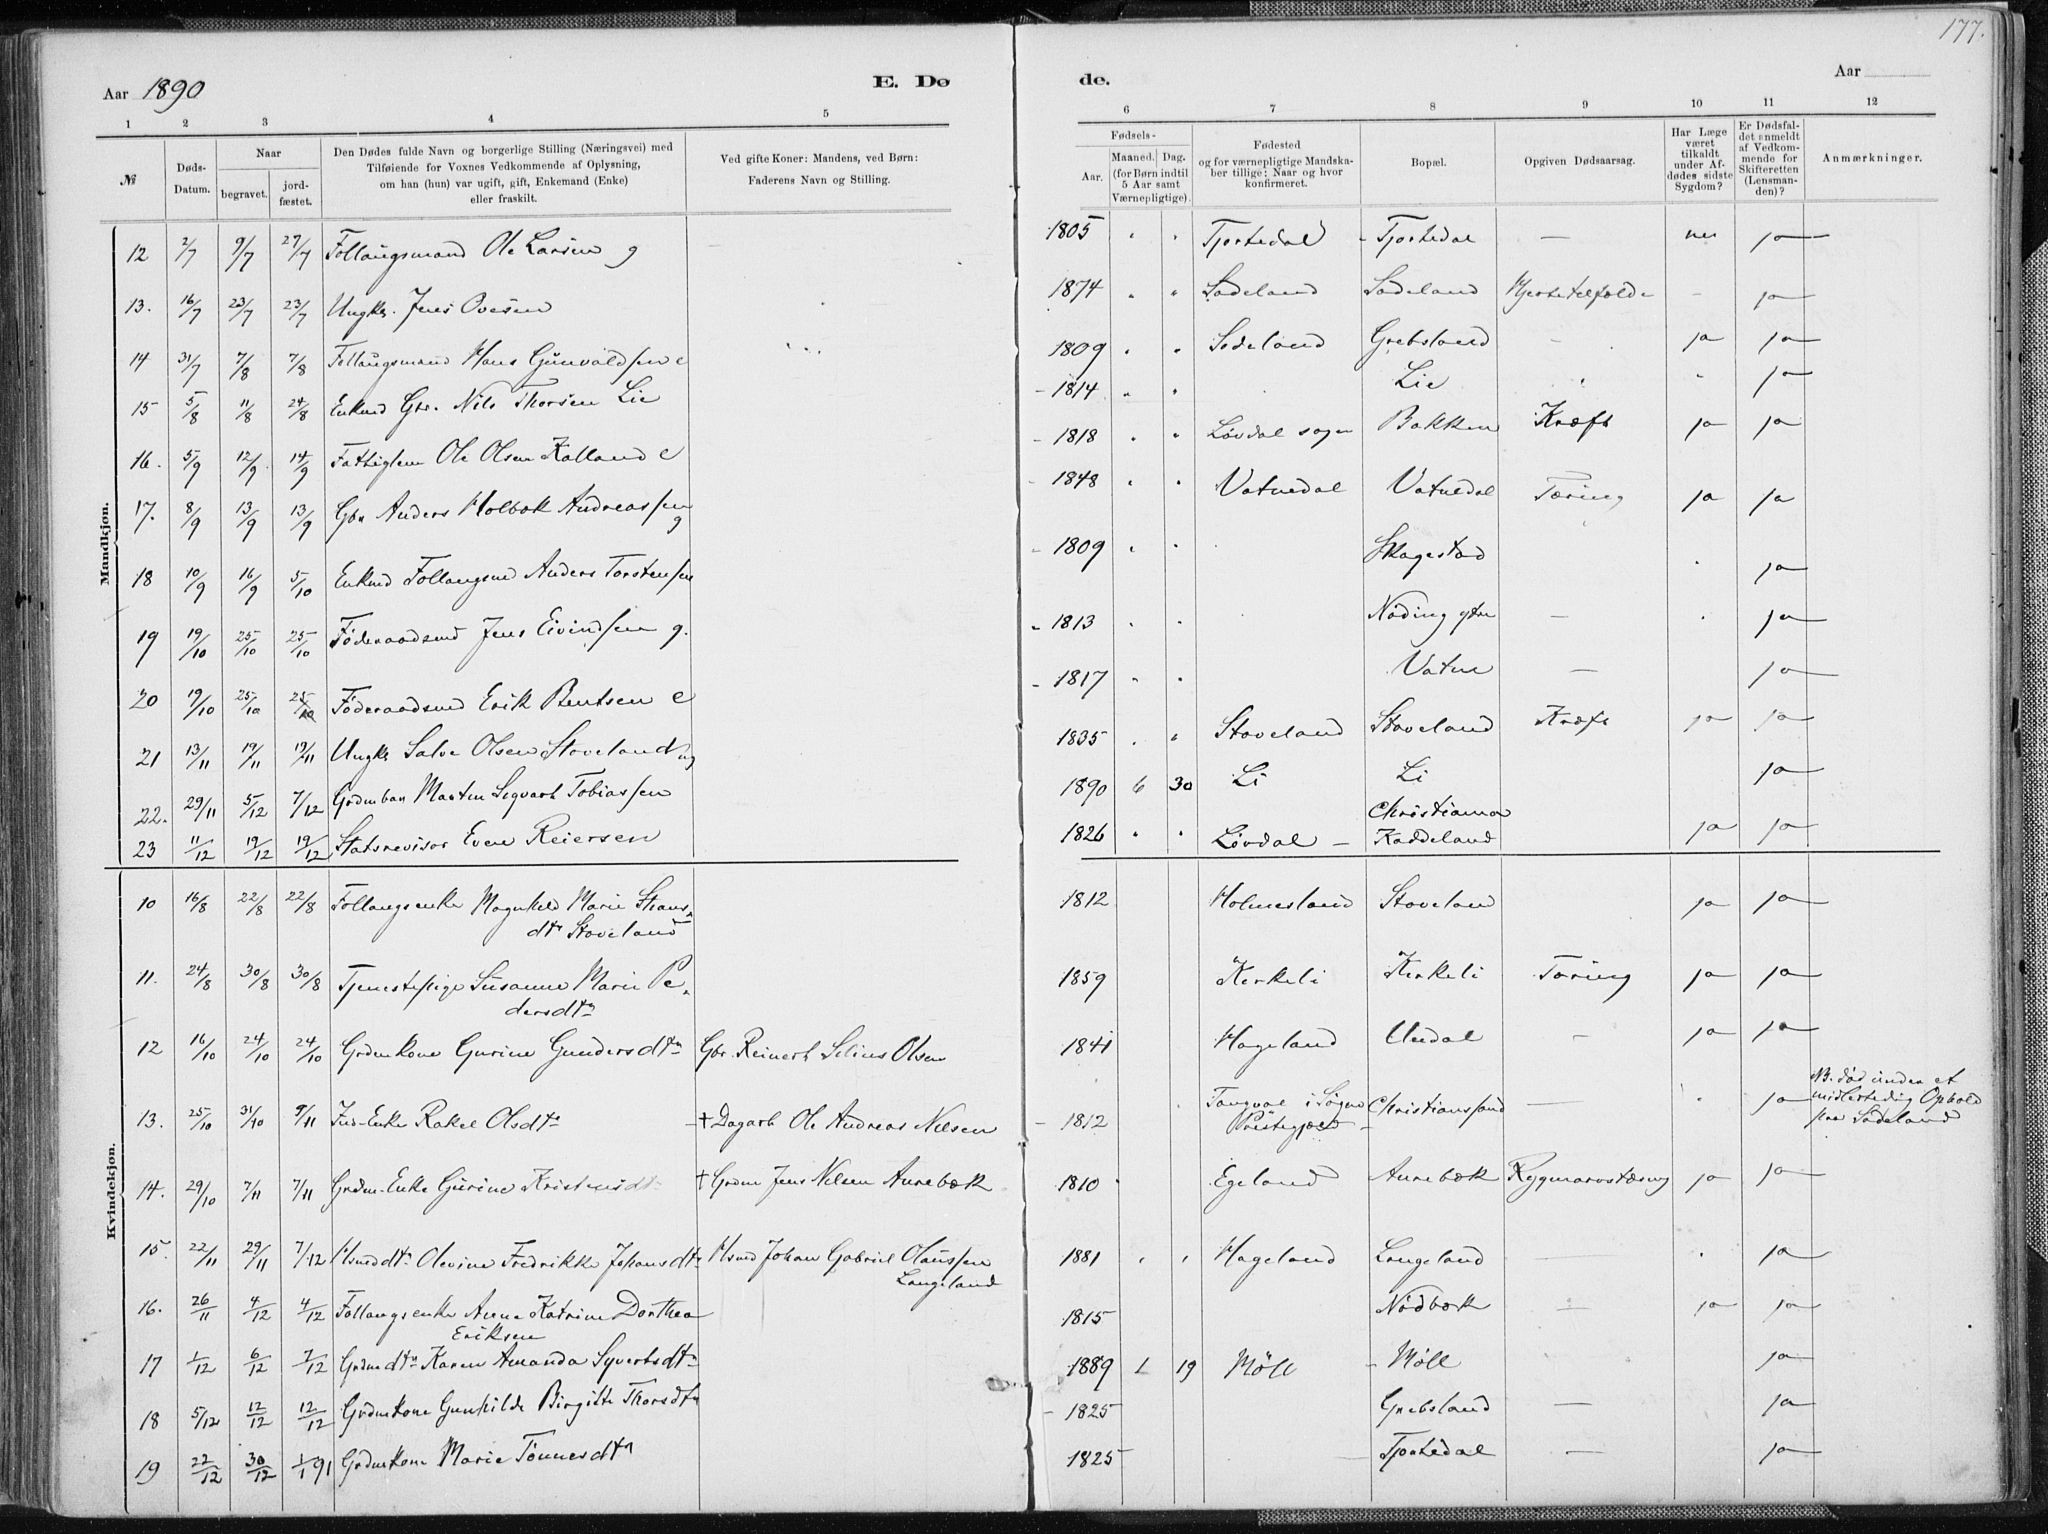 177.
Aar 1890
E. Dø
de.
Aar
1 2 3 4 5 6 7 8 9 10 11 12
№
Døds-
Datum.
Naar
begravet.
jord-
fæstet.
Den Dødes fulde Navn og borgerlige Stilling (Næringsvei) med
Tilføiende for Voxnes Vedkommende af Oplysning,
om han (hun) var ugift, gift, Enkemand (Enke)
eller fraskilt.
Ved gifte Koner: Mandens, ved Børn:
Faderens Navn og Stilling.
Fødsels-
Aar.
Maaned. Dag.
(for Børn indtil
5 Aar samt
Værnepligtige).
Fødested
og for værnepligtige Mandska-
ber tillige: Naar og hvor
konfirmeret.
Bopæl.
Opgiven Dødsaarsag.
Har Læge
været
tilkaldt
under Af-
dødes sidste
Sygdom?
Er Dødsfal-
det anmeldt
af Vedkom-
mende for
Skifteretten
(Lensman-
den)?
Anmærkninger.
Mandkjøn.
12 2/7 9/7 27/7 Follaugsmand Ole Larsen g 1805 " " Tjostedal - Tjostedal — nei ja
13. 16/7 23/7 23/7 Ungkr. Jens Ovesen 1874 " " Ladeland Ladeland Hjertetilfælde - ja
14 31/7 7/8 7/8 Follaugsmand Hans Gunvaldsen e 1809 " " Lodeland Grebsland - ja ja
15 5/8 11/8 24/8 Enkmd Gbr. Nils Thorsen Lie - 1814 " " Lie " " ja
16. 5/9 12/9 14/9 Fattiglem Ole Olsen Kalland e - 1818 " " Løvdal sogn Bakken Kræft ja ja
17. 8/9 13/9 13/9 Gbr Anders Holbæk Andreassen g - 1848 " " Vatnedal Vatnedal Tæring ja ja
18 10/9 16/9 5/10 Enkmd Follaugsmd Anders Torstensen - 1809 " " Skagestad " ja
19 19/10 25/10 25/10 Føderaadsmd Jens Eivindsen g. - 1813 " " Noding ytre — " ja
20 19/10 25/10 25/10 Føderaadsmd Erik Bentsen e - 1817 " " Vatne — ja
21 13/11 19/11 19/11 Ungkr Salve Olsen Stoveland ug 1835 " " Stoveland Stoveland Kræft ja ja
22. 29/11 5/12 7/12 Grdmbarn Martin Sigvart Tobiassen 1890 6 30 Li Li ja
23 11/12 19/12 19/12 Statsrevisor Even Reiersen 1826 " " Løvdal - Christiania Kaddeland ja ja
Kvindekjøn.
10 16/8 22/8 22/8 Follaugsenke Magnhild Marie Stians-
dtr Stoveland 1812 Holmesland Stoveland ja ja
11. 24/8 30/8 30/8 Tjenestepige Susanne Marie Pe-
dersdtr 1859 Kirkeli Kirkeli Tæring ja ja
12 16/10 24/10 24/10 Grdmkone Gurine Gundersdtr Gbr. Reinert Selius Olsen 1841 Hageland Undal - ja ja
13. 25/10 31/10 9/11 Ind-Enke Rakel Olsdtr - † Dagarb Ole Andreas Nilsen - 1812 Tangval i Søgne
Præstegjeld - Christianssand — " ja NB. død under et
midlertidig Ophold
paa Lodeland
14. 29/10 7/11 7/11 Grdm-Enke Gurine Kristensdtr † Grdm Jens Nilsen Aurebæk 1810 Egeland Aurebæk Rygmarvstæring ja ja
15. 22/11 29/11 7/12 Hsmdtr Olevine Fredrikke Johansdtr Hsmd Johan Gabriel Olaussen
Langeland 1881 " " Hageland Langeland — " ja
16. 26/11 4/12 4/12 Follaugsenke Anne Katrine Dorthea
Eriksen 1815 Nødbæk - ja ja
17 1/12 6/12 7/12 Grdmdtr Karen Amanda Syvertsdtr 1889 1 19 Møll - Møll ja
18 5/12 12/12 12/12 Grdmkone Gunhilde Birgitte Thorsdtr - 1825 Grebsland — ja
19 22/12 30/12 1/1 91 Grdmkone Marie Tønnesdtr 1825 Tjostedal — ja